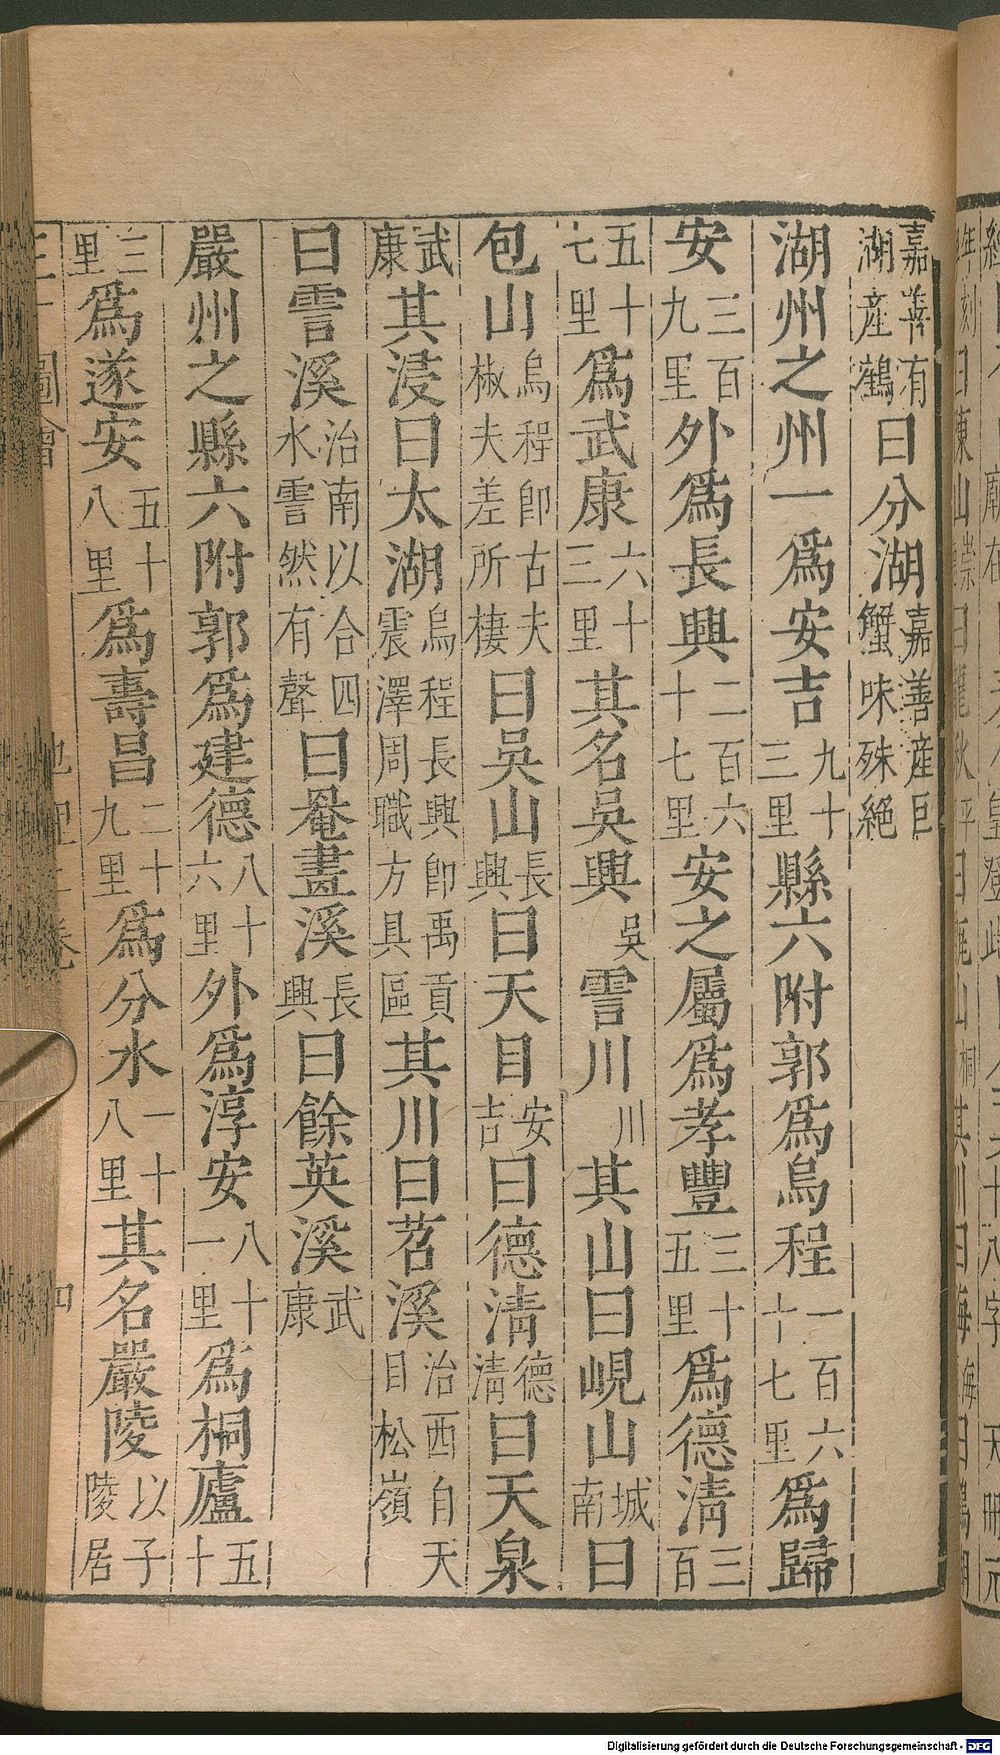 嘉善有湖產鶴曰分湖嘉善產巨蟹味殊絕
湖州之州一爲安吉九十三里縣六附郭爲烏程一百六十七里爲歸
安三百九里外爲長興二百六十七里安之屬爲孝豐三十五里爲德清三百
五十七里爲武康六十三里其名吳興吳霅川川其山曰峴山城南曰
包山烏程卽古夫椒夫差所棲曰吳山長興曰天目安吉曰德清德清曰天泉
武康其浸曰太湖烏程長興卽禹貢震澤周職方具區其川曰苕溪治西自天目松嶺
曰霅溪治南以合四水霅然有聲曰罨畫溪長興曰餘英溪武康
嚴州之縣六附郭爲建德八十六里外爲淳安八十一里爲桐廬五十
三里爲遂安五十八里爲壽昌二十九里爲分水一十八里其名嚴陵以子陵居
圖會 卷 四
Digitalisierung gefördert durch die Deutsche Forschungsgemeinschaft - DFG